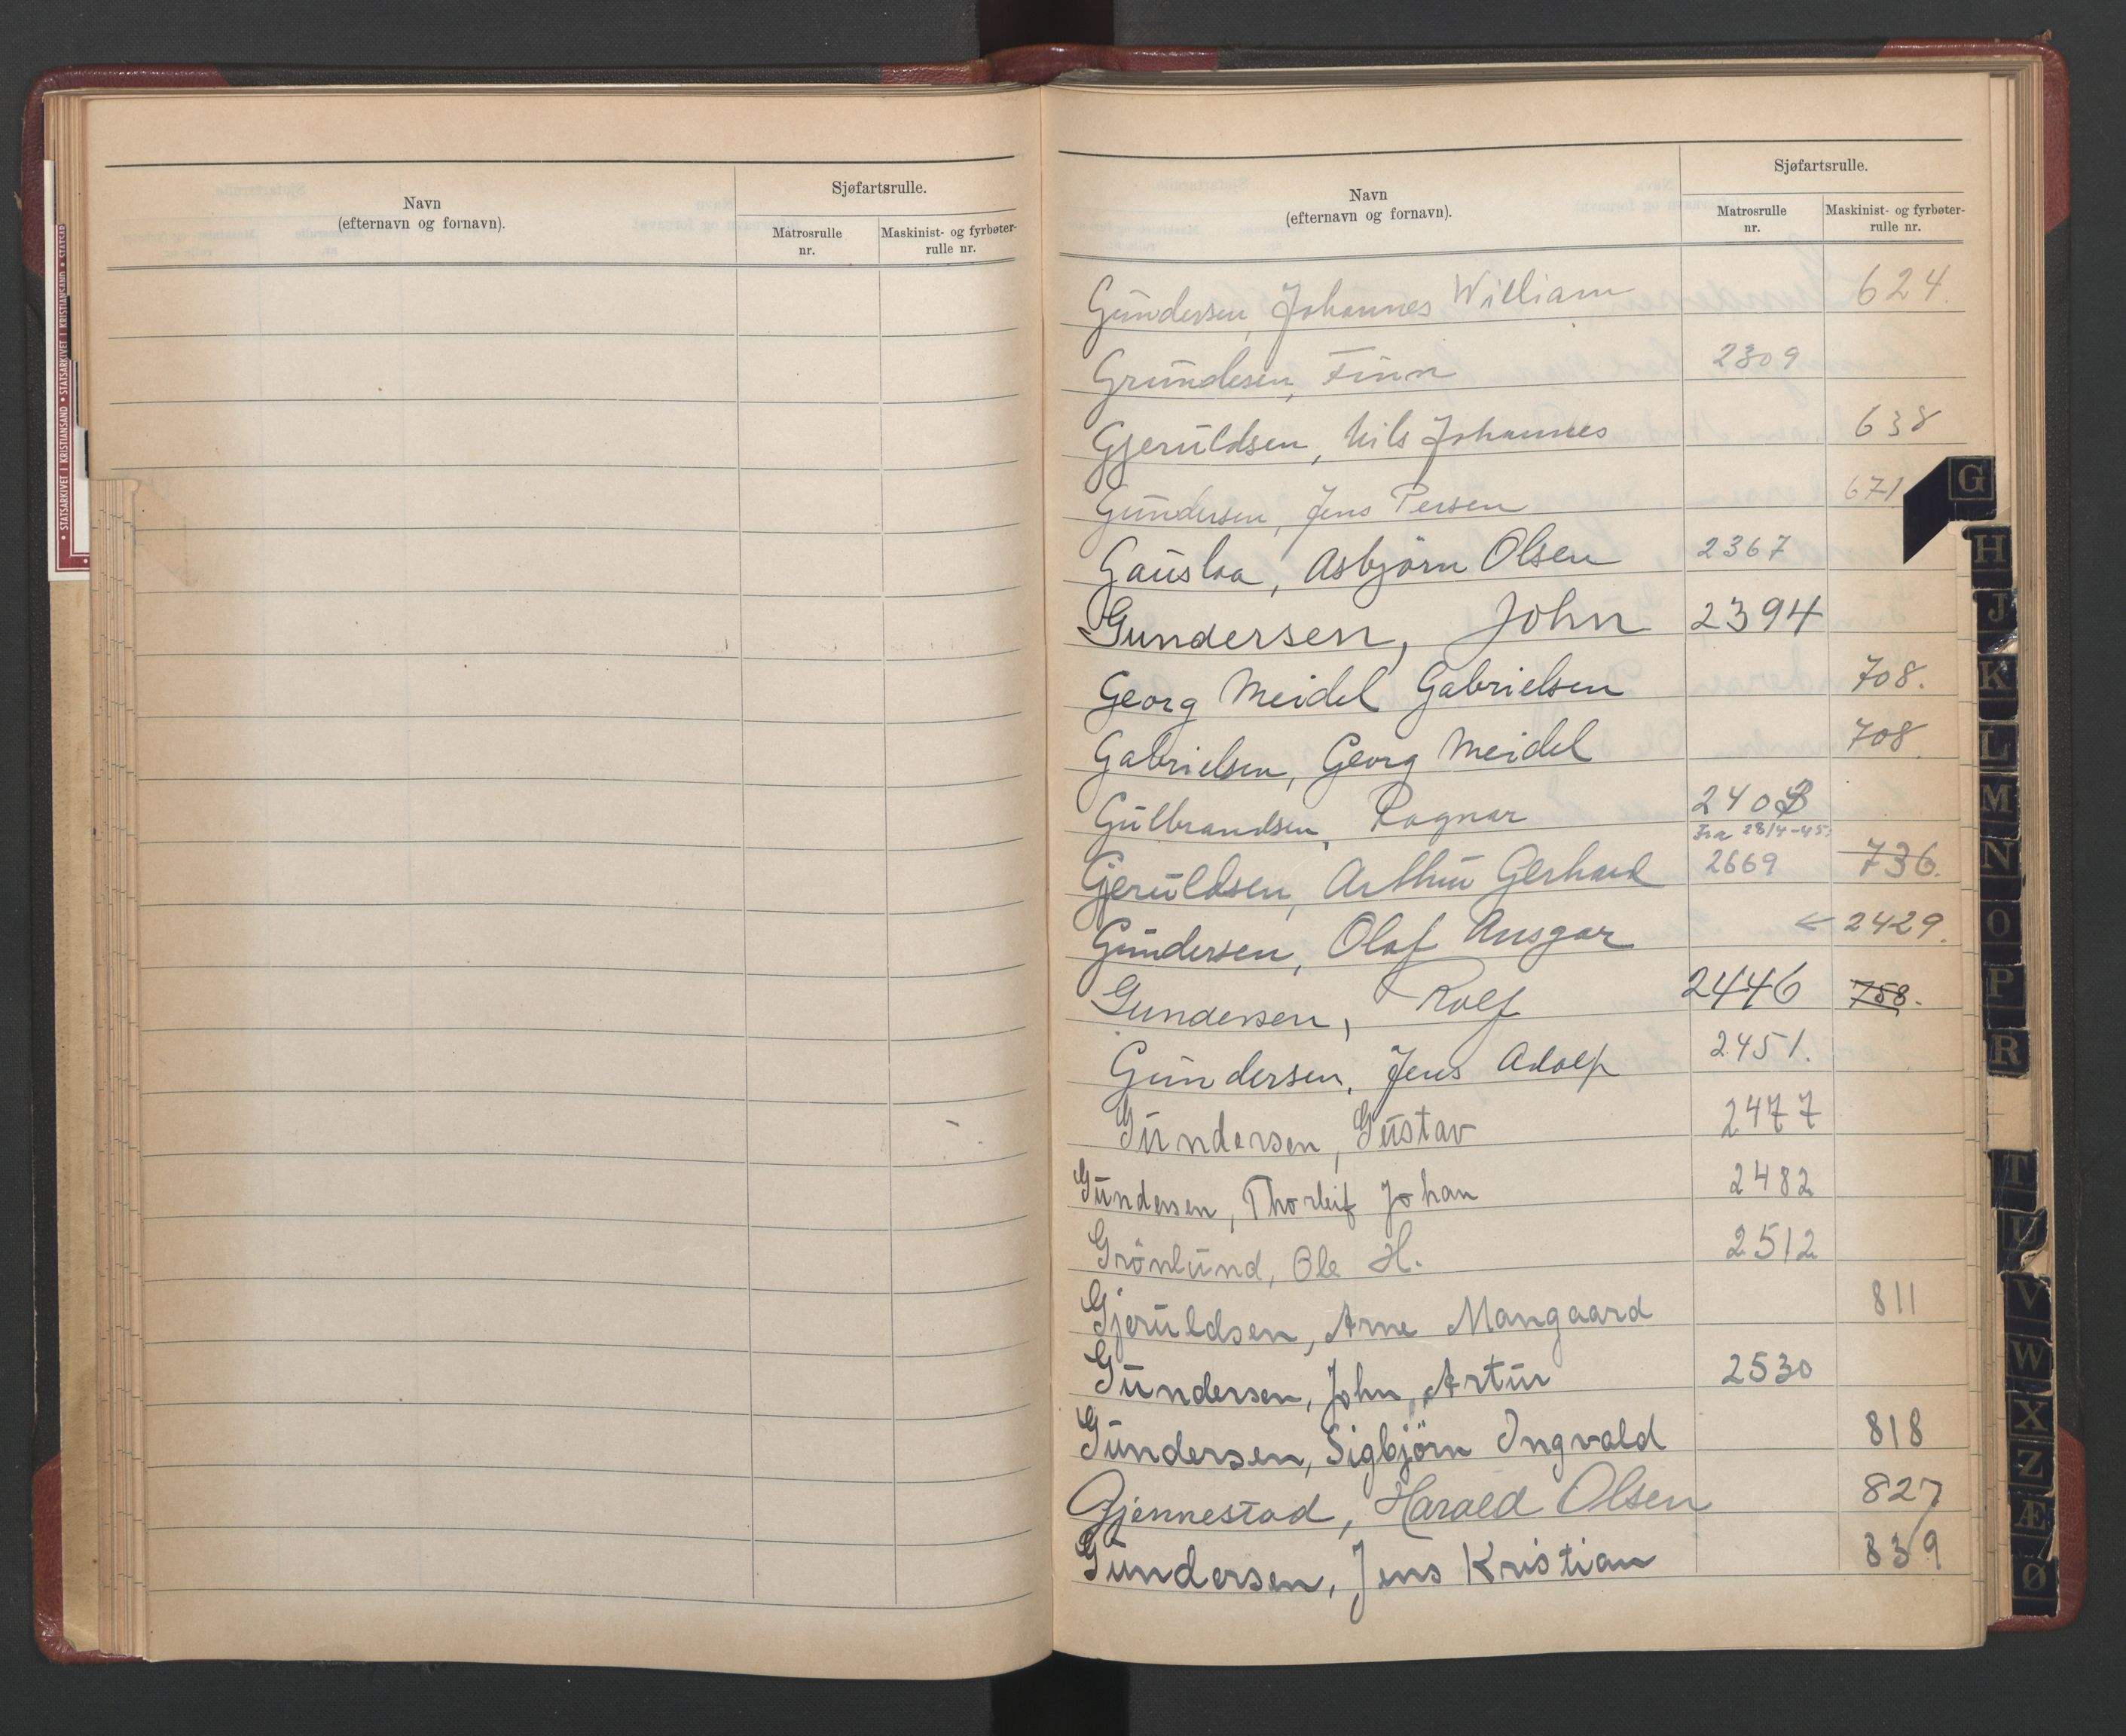 Navn
(efternavn og fornavn).
Sjøfartsrulle.
Matrosrulle
nr.
Maskinist- og fyrbøter-
rulle nr.
• STATSARKIVET I KRISTIANSAND • STATSARKIVET I KRISTIANSAND • STATSAR
Navn
(efternavn og fornavn).
Sjøfartsrulle.
Matrosrulle
nr.
Maskinist- og fyrbøter-
rulle nr.
Gundersen, Johannes William 624.
Grundesen, Finn 2309
Gjeruldsen, Nils Johannes 638
Gundersen, Jens Persen 671
Gauslaa, Asbjørn Olsen 2367
Gundersen, John 2394
Georg Meidel Gabrielsen 708.
Gabrielsen, Georg Meidel 708.
Gulbrandsen, Ragnar 2408
Fra 28/4-45.
Gjeruldsen, Arthur Gerhard 2669 736.
Gundersen, Olaf Ansgar < 2429.
Gundersen, Rolf 2446 758.
Gundersen, Jens Adolf 2451.
Gundersen, Gustav 2477
Gundersen, Thorleif Johan 2482
Grönlund, Ole H. 2512
Gjeruldsen, Arne Mangaard 811
Gundersen, John, Artur 2530
Gundersen, Sigbjörn Ingvald 818
Gjennestad, Harald Olsen 827
Gundersen, Jens Kristian 839
G
H
J
K
L
M
N
O
P
R
T
U
V
W
X
Z
Æ
Ø